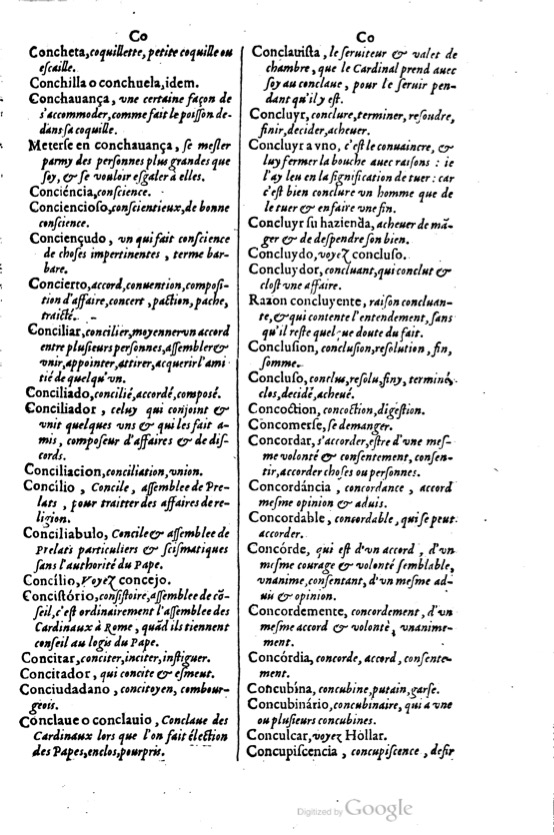 Co
Concheta, coquillette, petite coquille ou
escaille.
Conchilla o conchuela, idem.
Conchauança, vne certaine façon de
s'accommoder, comme fait le poisson de-
dans sa coquille.
Meterse en conchauança, se mesler
parmy des personnes plus grandes que
soy, & se vouloir esgaler à elles.
Conciéncia, conscience.
Conciencioso, conscientieux, de bonne
conscience.
Conciençudo, vn qui fait conscience
de choses impertinentes, terme bar-
bare.
Concierto, accord, conuention, composi-
tion d'affaire, concert, paction, pache,
traicté.
Conciliar, concilier, moyenner vn accord
entre plusieurs personnes, assembler &
vnir, appointer, attirer, acquerir l'ami
tié de quelqu'vn.
Conciliado, concilié, accordé, composé.
Conciliador, celuy qui conjoint &
vnit quelques vns & qui les fait a-
mis, composeur d'affaires & de dis-
cords.
Conciliacion, conciliation, vnion.
Concilio, Concile, assemblee de Pre-
lats, pour traitter des affaires de re-
ligion.
Conciliabulo, Concile & assemblee de
Prelats particuliers & scismatiques
sans l'authorité du Pape.
Concílio, voyez concejo.
Concistório, consistoire, assemblee de cõ-
seil, c'est ordinairement l'assemblee des
Cardinaux à Rome, quãd ils tiennent
conseil au logis du Pape.
Concitar, conciter, inciter, instiguer.
Concitador, qui concite & esmeut.
Conciudadano, concitoyen, combour-
geois.
Cónclaue o conclauio, Conclaue des
Cardinaux lors que l'on fait élection
des Papes, enclos, pourpris.
Co
Conclauista, le seruiteur & valet de
chambre, que le Cardinal prend auec
soy au conclaue, pour le seruir pen-
dant qu'il y est.
Concluyr, conclure, terminer, resoudre,
finir, decider, acheuer.
Concluyr a vno, c'est le conuaincre, &
luy fermer la bouche auec raisons : ie
l'ay leu en la signification de tuer : car
c'est bien conclure vn homme que de
le tuer & en faire vne fin.
Concluyr su hazienda, acheuer de mã-
ger & de despendre son bien.
Concluydo, voyez concluso.
Concluydor, concluant, qui conclut &
clost vne affaire.
Razon concluyente, raison concluan-
te, & qui contente l'entendement, sans
qu'il reste quelque doute du fait.
Conclusion, conclusion, resolution, fin,
somme.
Concluso, conclus, resolu, finy, terminé,
clos, decidé, acheué.
Concoction, concoction, digestion.
Concomerse, se demanger.
Concordar, s'accorder, estre d'vne mes-
me volonté & consentement, consen-
tir, accorder choses ou personnes.
Concordáncia, concordance, accord
mesme opinion & aduis.
Concordable, concordable, qui se peut
accorder.
Concórde, qui est d'vn accord, d'vn
mesme courage & volonté semblable,
vnanime, consentant, d'vn mesme ad-
uis & opinion.
Concordemente, concordement, d'vn
mesme accord & volonté, vnanime-
ment.
Concórdia, concorde, accord, consente-
ment.
Concubina, concubine, putain, garse.
Concubinário, concubinaire, qui a vne
ou plusieurs concubines.
Conculcar, voyez Hollar.
Concupiscencia, concupiscence, desir
Digitized by Google